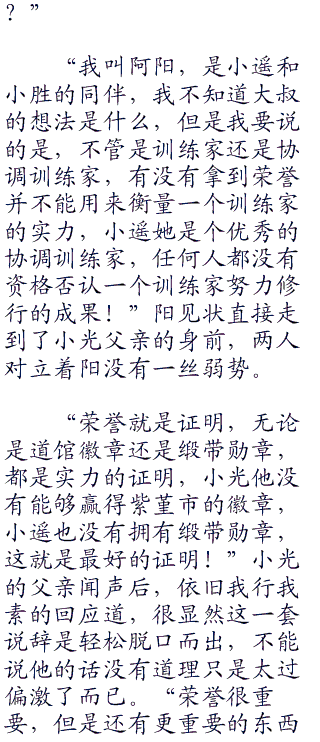 ？”
“我叫阿阳，是小遥和
小胜的同伴，我不知道大叔
的想法是什么，但是我要说
的是，不管是训练家还是协
调训练家，有没有拿到荣誉
并不能用来衡量一个训练家
的实力，小遥她是个优秀的
协调训练家，任何人都没有
资格否认一个训练家努力修
行的成果！”阳见状直接走
到了小光父亲的身前，两人
对立着阳没有一丝弱势。
“荣誉就是证明，无论
是道馆徽章还是缎带勋章，
都是实力的证明，小光他没
有能够赢得紫堇市的徽章，
小遥也没有拥有缎带勋章，
这就是最好的证明！”小光
的父亲闻声后，依旧我行我
素的回应道，很显然这一套
说辞是轻松脱口而出，不能
说他的话没有道理只是太过
偏激了而已。“荣誉很重
要，但是还有更重要的东西